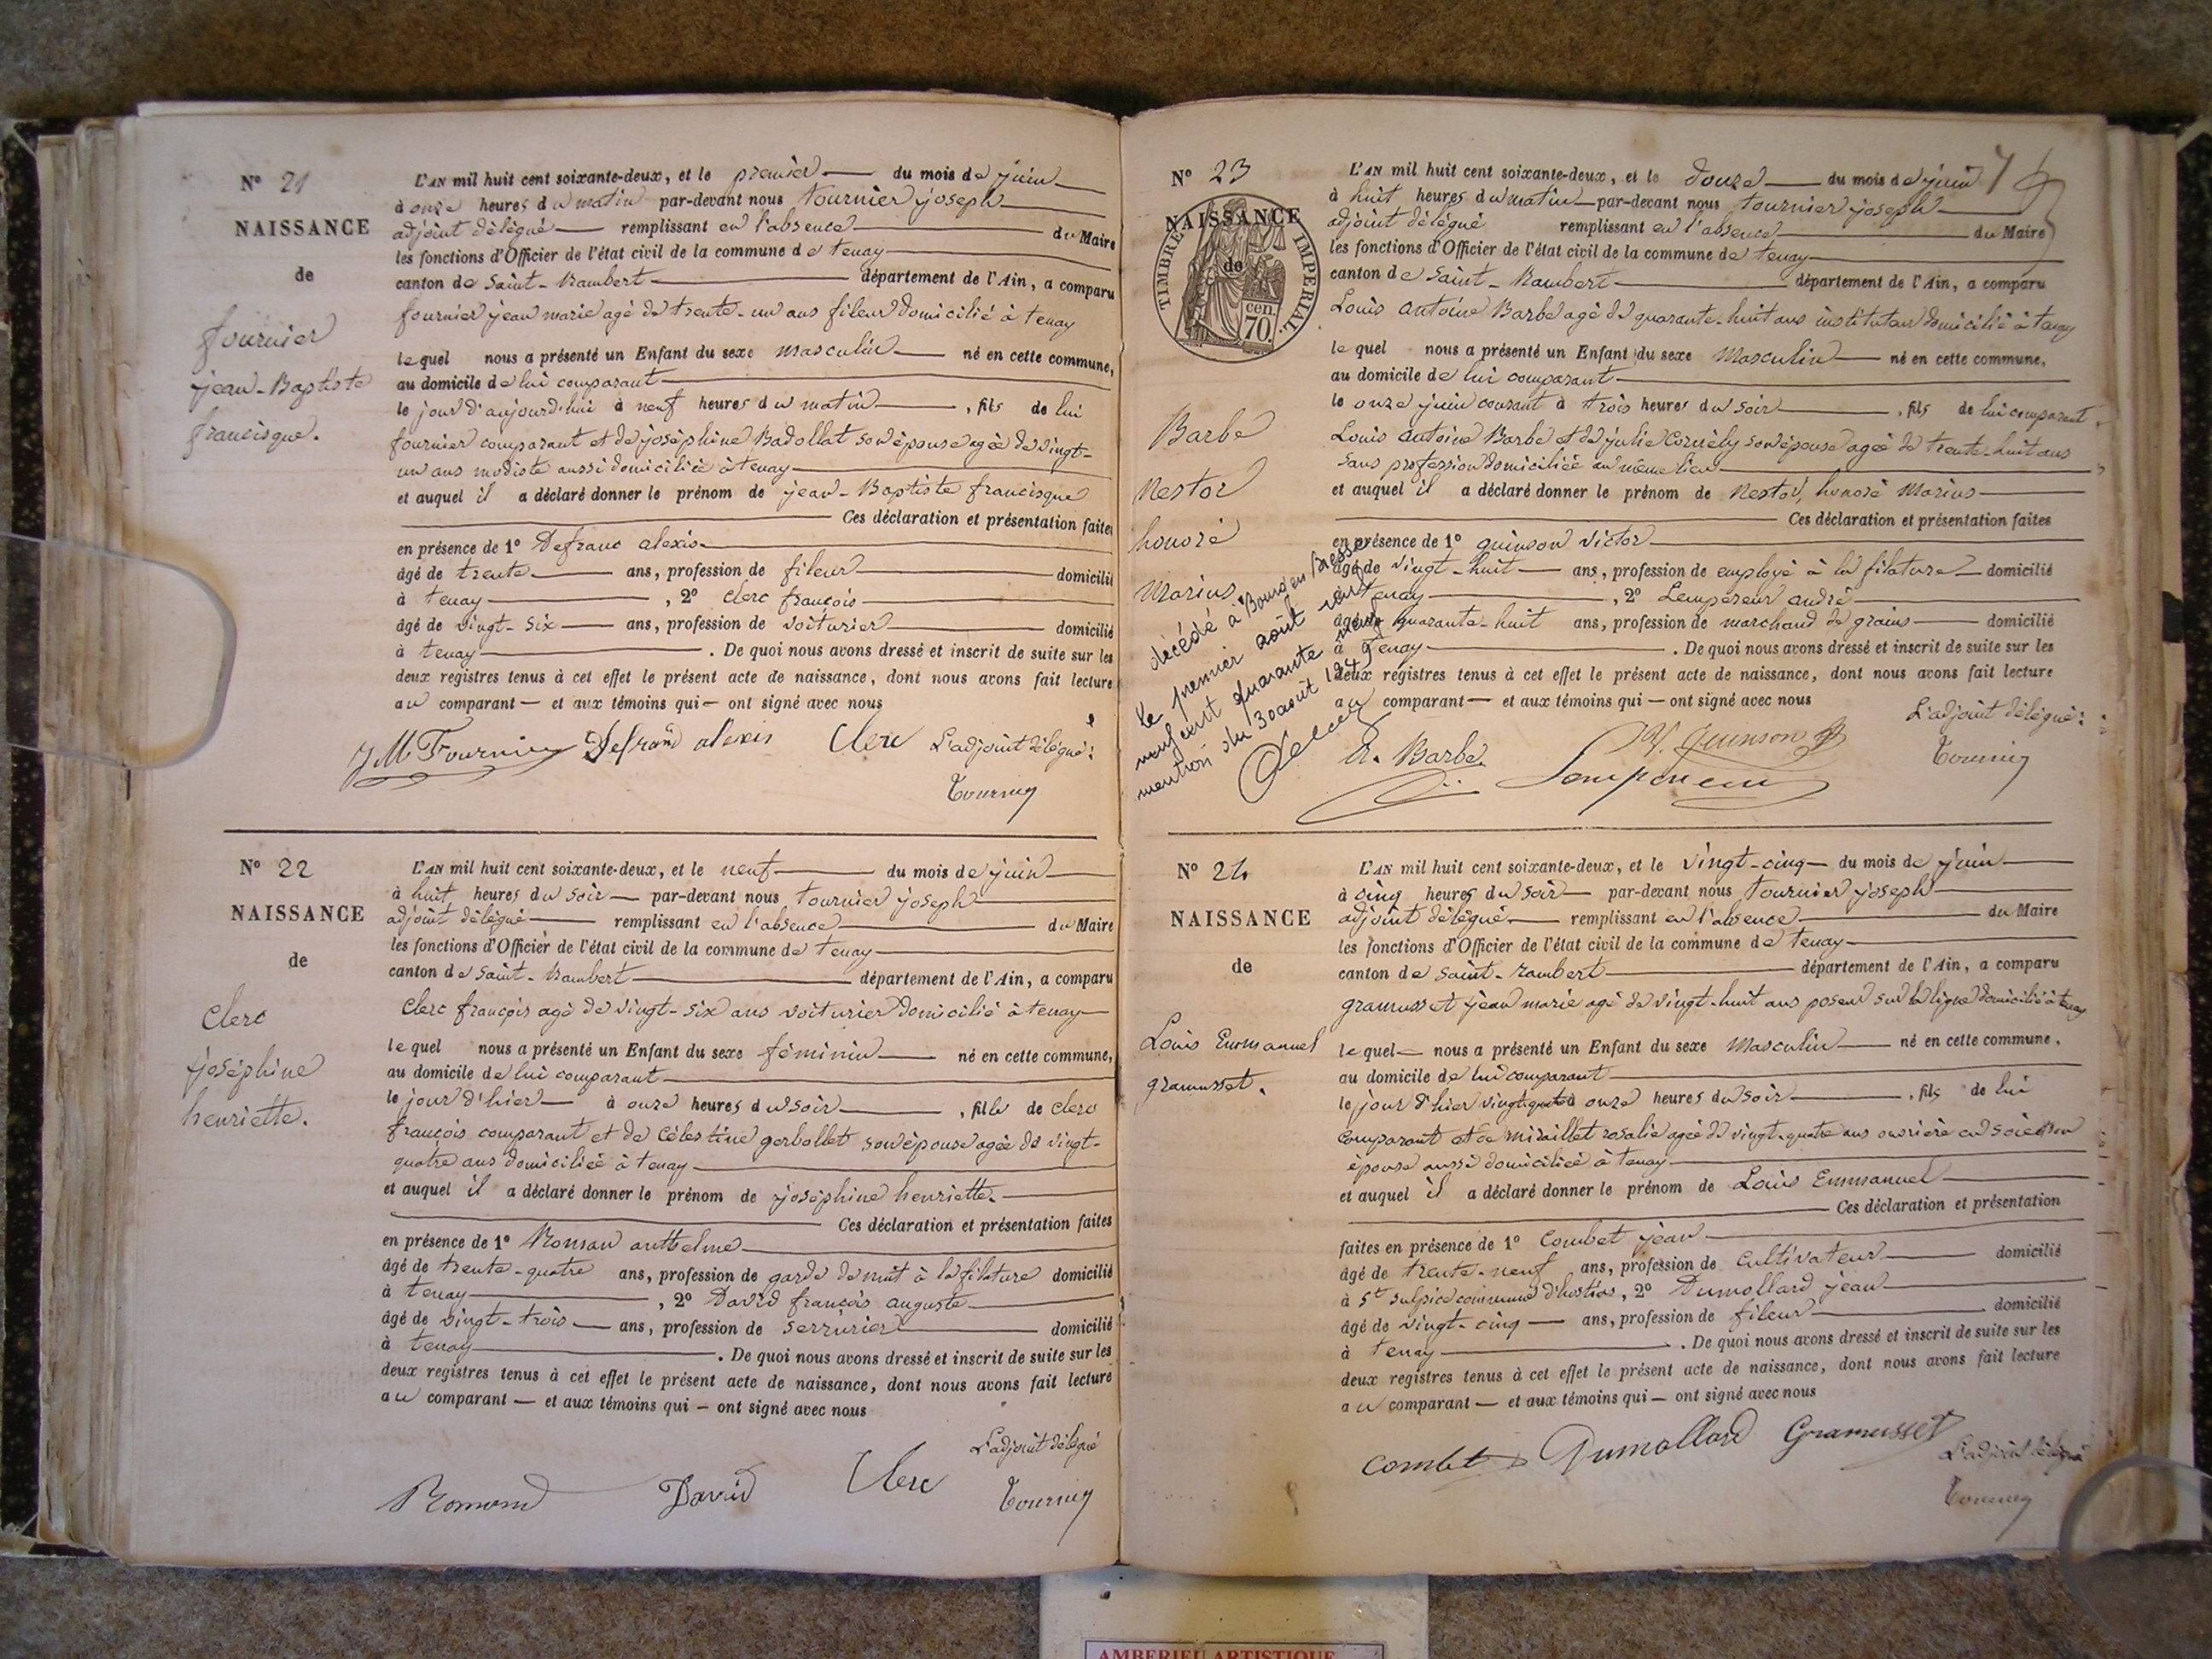 N° 21
NAISSANCE
de
fournier
jean-Baptiste
francisque.
L'AN mil huit cent soixante-deux, et le premier du mois de juin
à onze heures du matin par-devant nous tournier joseph
adjoint délégué remplissant en l'absence du Maire
les fonctions d'Officier de l'état civil de la commune de tenay
canton de Saint-Rambert département de l'Ain, a comparu
fournier jean marie agé de trente-un ans fileur domicilié à tenay
lequel nous a présenté un Enfant du sexe masculin né en cette commune,
au domicile de lui comparant
le jour d'aujourd'hui à neuf heures du matin, fils de lui
fournier comparant et de joséphine Badollat son épouse agée de vingt-
un ans modiste aussi domiciliée à tenay
et auquel il a déclaré donner le prénom de jean-Baptiste francisque
Ces déclaration et présentation faites
en présence de 1° Defranc alexis
âgé de trente ans, profession de fileur domicilié
à tenay, 2° Clerc françois
âgé de vingt-six ans, profession de voiturier domicilié
à tenay. De quoi nous avons dressé et inscrit de suite sur les
deux registres tenus à cet effet le présent acte de naissance, dont nous avons fait lecture
au comparant — et aux témoins qui — ont signé avec nous
JM Fournier Defranc alexis Clerc L'adjoint délégué:
Tournier
N° 22
NAISSANCE
de
Clerc
joséphine
henriette.
L'AN mil huit cent soixante-deux, et le neuf du mois de juin
à huit heures du soir par-devant nous tournier joseph
adjoint délégué remplissant en l'absence du Maire
les fonctions d'Officier de l'état civil de la commune de tenay
canton de Saint-Rambert département de l'Ain, a comparu
Clerc françois agé de vingt-six ans voiturier domicilié à tenay
lequel nous a présenté un Enfant du sexe féminin né en cette commune,
au domicile de lui comparant
le jour d'hier à onze heures du soir, fille de Clerc
françois comparant et de Célestine gerbollet son épouse agée de vingt-
quatre ans domiciliée à tenay
et auquel il a déclaré donner le prénom de joséphine henriette.
Ces déclaration et présentation faites
en présence de 1° Roman anthelme
âgé de trente-quatre ans, profession de garde de nuit à la filature domicilié
à tenay, 2° David françois auguste
âgé de vingt-trois ans, profession de serrurier domicilié
à tenay. De quoi nous avons dressé et inscrit de suite sur les
deux registres tenus à cet effet le présent acte de naissance, dont nous avons fait lecture
au comparant — et aux témoins qui — ont signé avec nous
L'adjoint délégué
David Clerc Tournier
N° 23
NAISSANCE
de
TIMBRE IMPERIAL.
70. cen.
Barbe
Nestor
honoré
Marius
décédé à Bourg en Bresse
le premier août
neuf cent quarante neuf
mention du 30 août 1949
L'AN mil huit cent soixante-deux, et le douze du mois de juin
à huit heures du matin par-devant nous tournier joseph
adjoint délégué remplissant en l'absence du Maire
les fonctions d'Officier de l'état civil de la commune de tenay
canton de Saint-Rambert département de l'Ain, a comparu
Louis antoine Barbe agé de quarante-huit ans instituteur domicilié à tenay
lequel nous a présenté un Enfant du sexe Masculin né en cette commune,
au domicile de lui comparant
le onze juin courant à trois heures du soir, fils de lui comparant
Louis antoine Barbe et de julie Cornély son épouse agée de trente-huit ans
sans profession domiciliée au même lieu
et auquel il a déclaré donner le prénom de Nestor, honoré Marius
Ces déclaration et présentation faites
en présence de 1° quinson victor
âgé de vingt-huit ans, profession de employé à la filature domicilié
à tenay, 2° Lempereur andré
âgé de quarante-huit ans, profession de marchand de grains domicilié
à Tenay. De quoi nous avons dressé et inscrit de suite sur les
deux registres tenus à cet effet le présent acte de naissance, dont nous avons fait lecture
au comparant — et aux témoins qui — ont signé avec nous
L'adjoint délégué:
A. Barbe. V. Quinson Tournier
Lempereur
N° 24
NAISSANCE
de
Louis Emmanuel
gramusset.
L'AN mil huit cent soixante-deux, et le vingt-cinq du mois de juin
à cinq heures du soir par-devant nous tournier joseph
adjoint délégué remplissant en l'absence du Maire
les fonctions d'Officier de l'état civil de la commune de tenay
canton de Saint-rambert département de l'Ain, a comparu
gramusset jean marie agé de vingt-huit ans poseur sur la ligne domicilié à tenay
lequel nous a présenté un Enfant du sexe Masculin né en cette commune.
au domicile de lui comparant
le jour d'hier vingt-quatre à onze heures du soir, fils de lui
comparant et de miraillet rosalie agée de vingt-quatre ans ouvrière en soie son
épouse aussi domiciliée à tenay
et auquel il a déclaré donner le prénom de Louis Emmanuel
Ces déclaration et présentation
faites en présence de 1° Combet jean
âgé de trente-neuf ans, profession de Cultivateur domicilié
à St Sulpice commune d'hostias, 2° Dumollard jean
âgé de vingt-cinq ans, profession de fileur domicilié
à tenay. De quoi nous avons dressé et inscrit de suite sur les
deux registres tenus à cet effet le présent acte de naissance, dont nous avons fait lecture
au comparant — et aux témoins qui — ont signé avec nous
Combet Dumollard Gramusset L'adjoint délégué
Tournier
AMBERIEU ARTISTIQUE